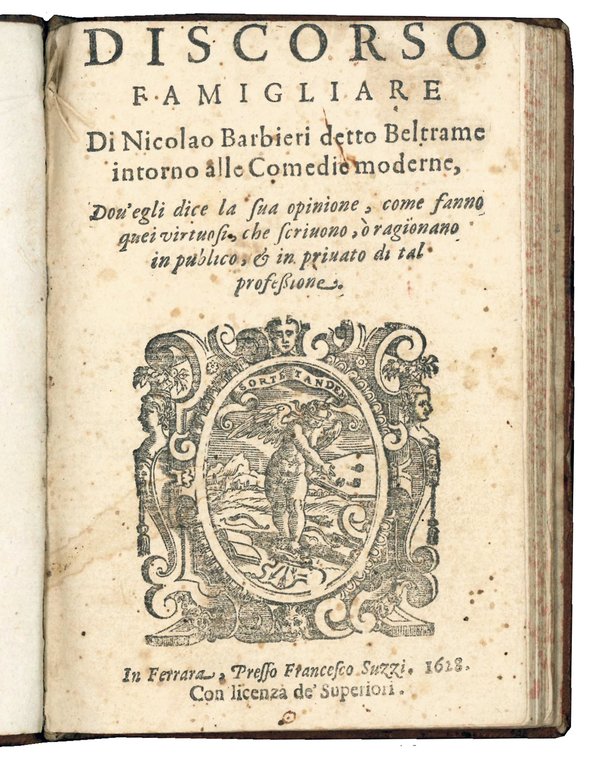 DISCORSO
FAMIGLIARE
Di Nicolao Barbieri detto Beltrame
intorno alle Comedie moderne,
Dou'egli dice la sua opinione, come fanno
quei virtuosi, che scriuono, ò ragionano
in publico, & in priuato di tal
professione.
SORTE TANDEM
In Ferrara, Presso Francesco Suzzi. 1628.
Con licenza de' Superiori.